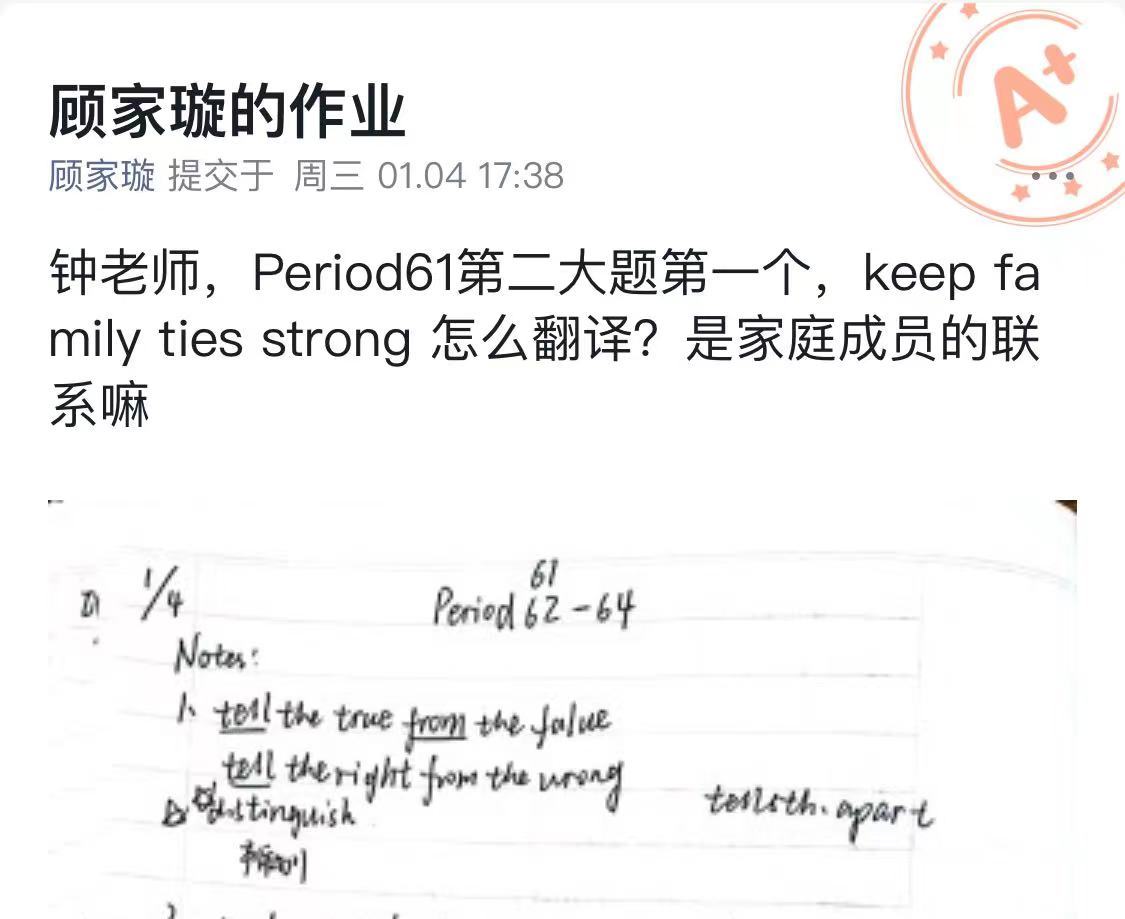 A+
顾家璇的作业
顾家璇 提交于 周三 01.04 17:38
钟老师，Period61第二大题第一个，keep fa
mily ties strong 怎么翻译？是家庭成员的联
系嘛
1/4
61
Period 62-64
Notes:
1. tell the true from the false
tell the right from the wrong
tell sth. apart
distinguish